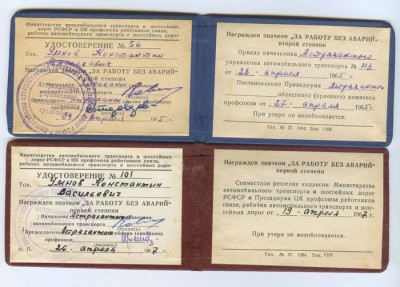 Министерство автомобильного транспорта и шоссейных
дорог РСФСР и ЦК профсоюза работников связи,
рабочих автомобильного транспорта и шоссейных дорог
УДОСТОВЕРЕНИЕ № 56
Тов. Умнов Константин
Васильевич
Награжден значком „ЗА РАБОТУ БЕЗ АВАРИЙ"
второй степени
Награжден значком „ЗА РАБОТУ БЕЗ АВАРИЙ"
второй степени
Приказ начальника Астраханского
управления автомобильного транспорта № 113
от 26 апреля 1965 г.
Постановление Президиума Астраханского
областного (краевого) комитета
профсоюза от 26 апреля 1965 г.
При утере не возобновляется.
Министерство автомобильного транспорта и шоссейных
дорог РСФСР и ЦК профсоюза работников связи,
рабочих автомобильного транспорта и шоссейных дорог
УДОСТОВЕРЕНИЕ № 101
Тов. Умнов Константин
Васильевич
Награжден значком „ЗА РАБОТУ БЕЗ АВАРИЙ"
первой степени
Начальник Астраханского
автомобильного транспорта
Председатель Астраханского
профсоюза
М. П. 26 апреля 1967 г.
Награжден значком „ЗА РАБОТУ БЕЗ АВАРИЙ"
первой степени
Совместное решение коллегии Министерства
автомобильного транспорта и шоссейных дорог
РСФСР и Президиума ЦК профсоюза работников
связи, рабочих автомобильного транспорта и шос-
сейных дорог от 19 апреля 1967 г.
При утере не возобновляется.